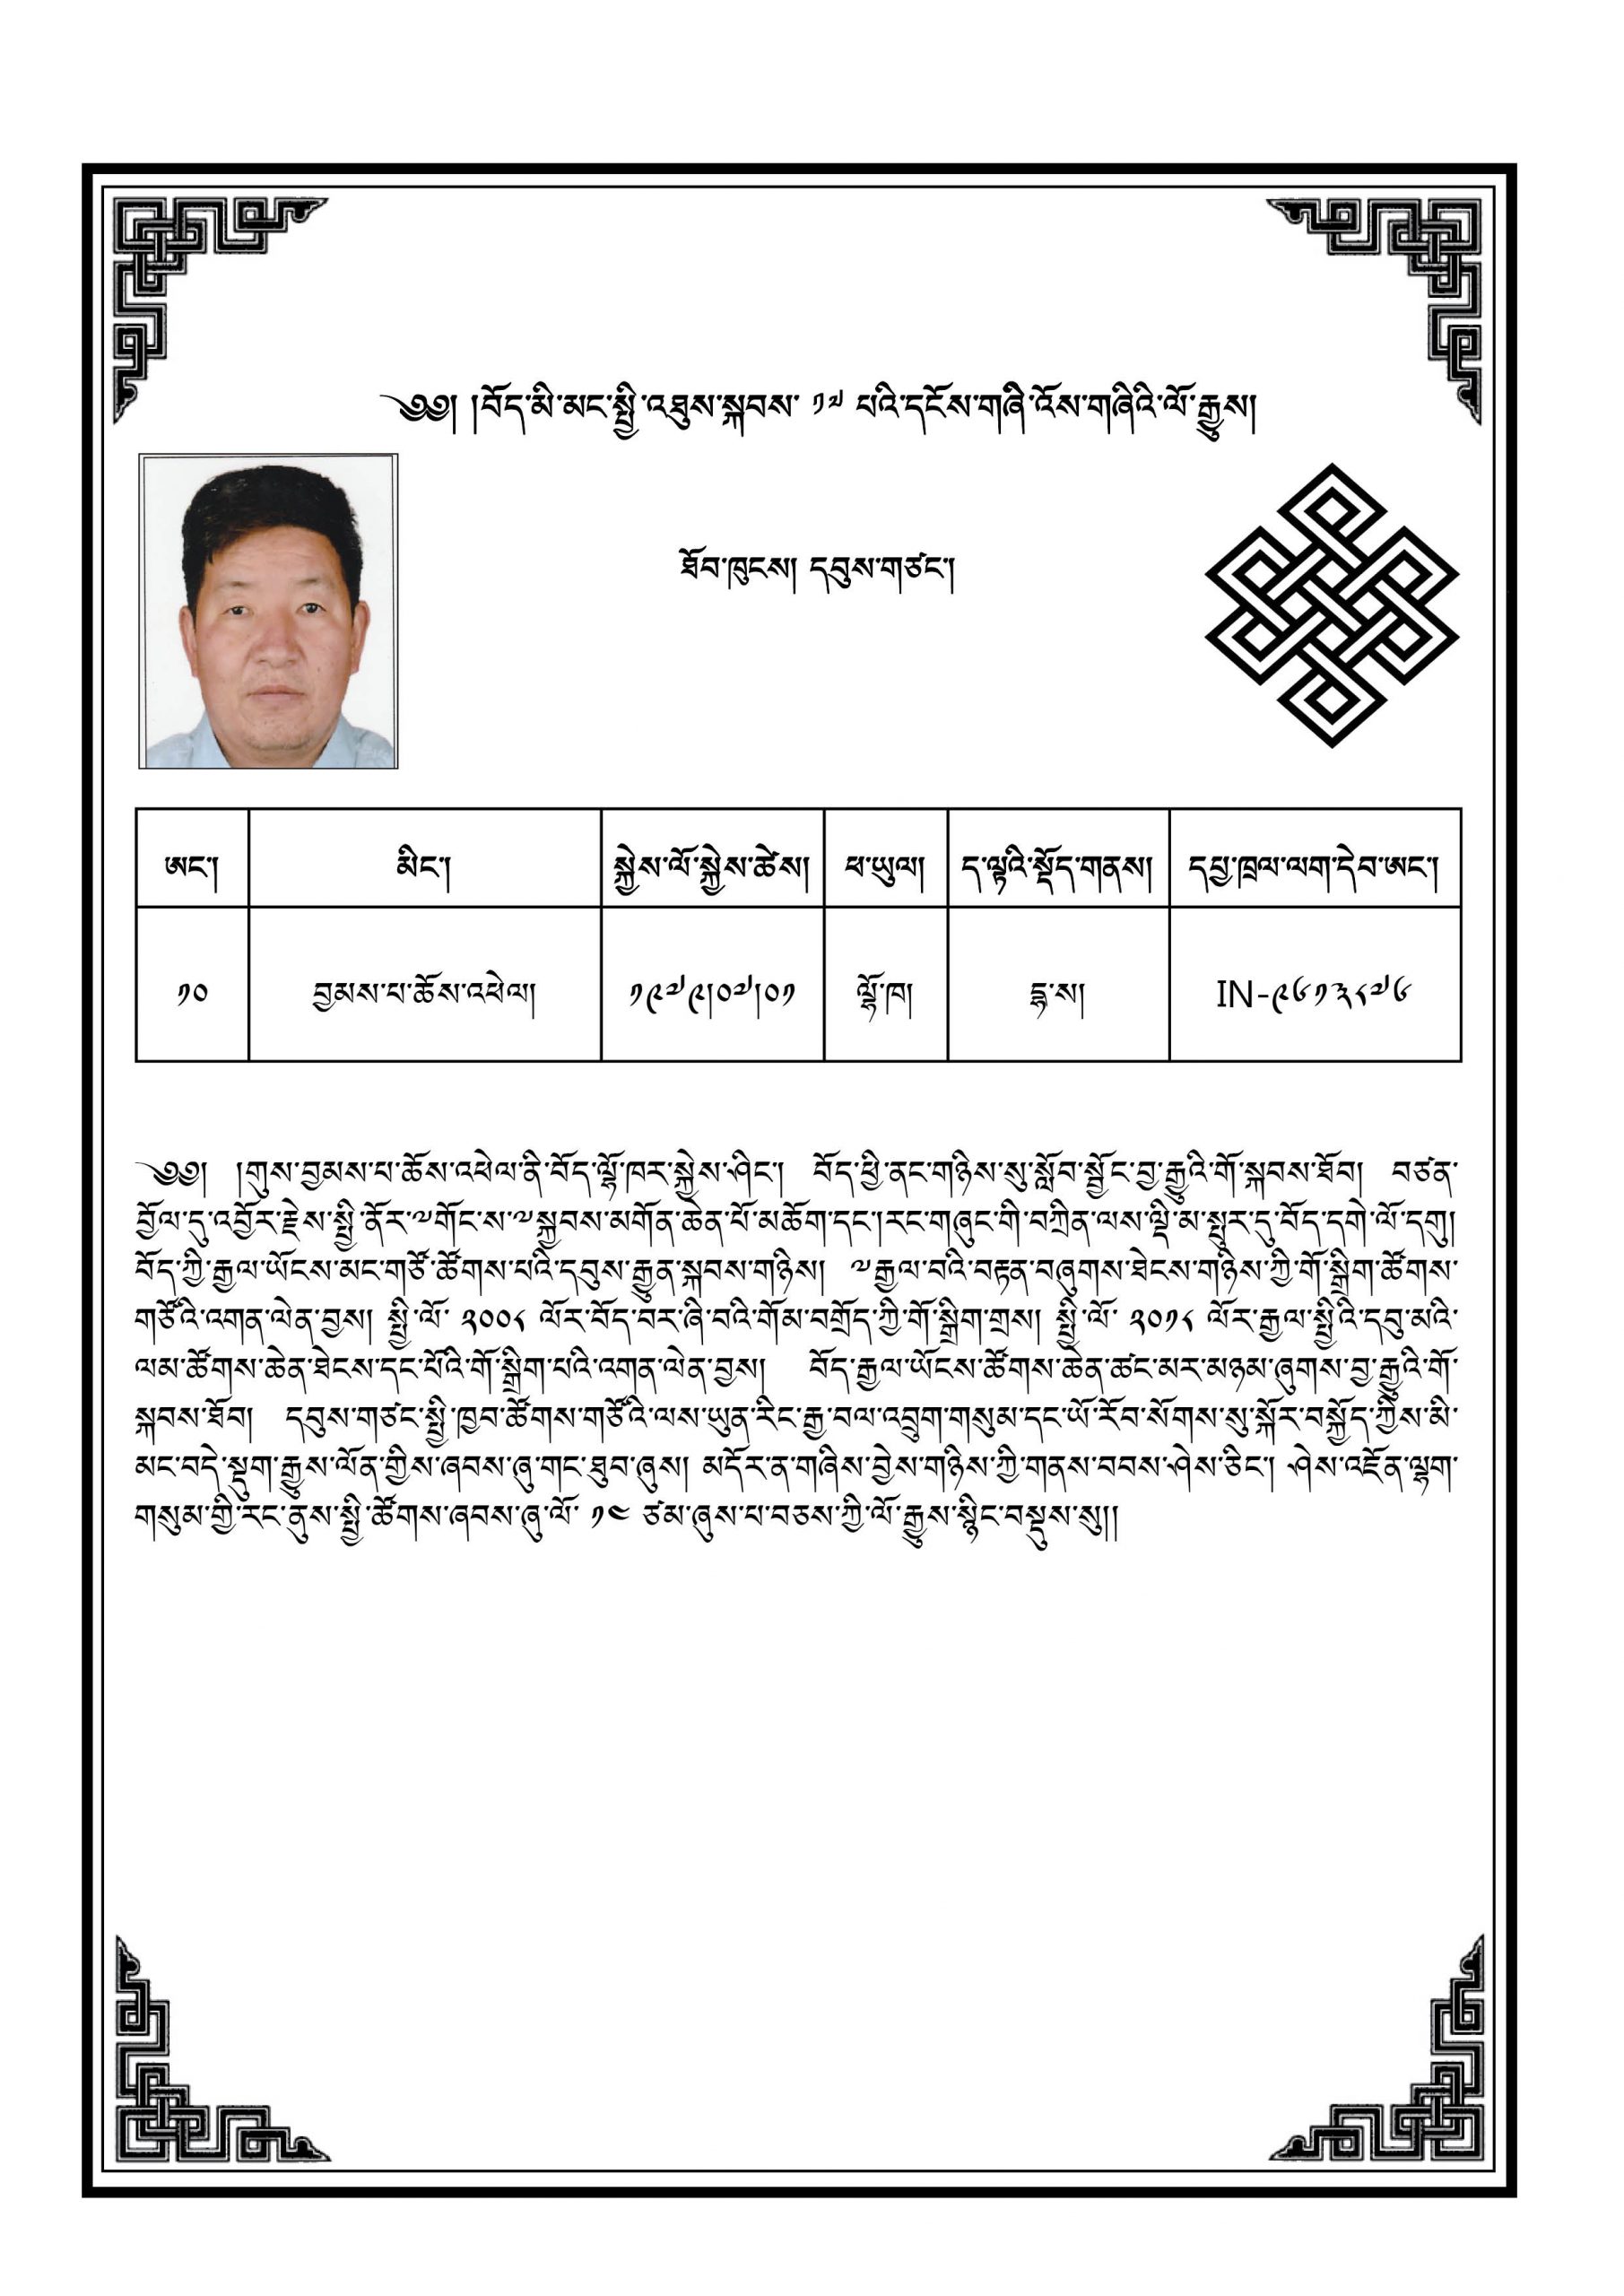 ༄༅། །བོད་མི་མང་སྤྱི་འཐུས་སྐབས་ ༡༧ པའི་དངོས་གཞི་འོས་གཞིའི་ལོ་རྒྱུས།
ཐོབ་ཁུངས། དབུས་གཙང་།
ཨང་། མིང་། སྐྱེས་ལོ་སྐྱེས་ཚེས། ཕ་ཡུལ། ད་ལྟའི་སྡོད་གནས། དཔྱ་ཁྲལ་ལག་དེབ་ཨང་།
༡༠ བྱམས་པ་ཆོས་འཕེལ། ༡༩༧༩།༠༧།༠༡ ལྷོ་ཁ། དྷ་ས། IN-༩༦༡༣༨༧༦
༄༅། །གུས་བྱམས་པ་ཆོས་འཕེལ་ནི་བོད་ལྷོ་ཁར་སྐྱེས་ཤིང་། བོད་ཕྱི་ནང་གཉིས་སུ་སློབ་སྦྱོང་བྱ་རྒྱུའི་གོ་སྐབས་ཐོབ། བཙན་
བྱོལ་དུ་འབྱོར་རྗེས་སྤྱི་ནོར་༸གོང་ས་༸སྐྱབས་མགོན་ཆེན་པོ་མཆོག་དང་།རང་གཞུང་གི་བཀྲིན་ལས་ལྡི་མ་སྤུར་དུ་བོད་དགེ་ལོ་དགུ།
བོད་ཀྱི་རྒྱལ་ཡོངས་མང་གཙོ་ཚོགས་པའི་དབུས་རྒྱུན་སྐབས་གཉིས། ༸རྒྱལ་བའི་བརྟན་བཞུགས་ཐེངས་གཉིས་ཀྱི་གོ་སྒྲིག་ཚོགས་
གཙོའི་འགན་ལེན་བྱས། སྤྱི་ལོ་ ༢༠༠༨ ལོར་བོད་བར་ཞི་བའི་གོམ་བགྲོད་ཀྱི་གོ་སྒྲིག་གྲས། སྤྱི་ལོ་ ༢༠༡༨ ལོར་རྒྱལ་སྤྱིའི་དབུ་མའི་
ལམ་ཚོགས་ཆེན་ཐེངས་དང་པོའི་གོ་སྒྲིག་པའི་འགན་ལེན་བྱས། བོད་རྒྱལ་ཡོངས་ཚོགས་ཆེན་ཚང་མར་མཉམ་ཞུགས་བྱ་རྒྱུའི་གོ་
སྐབས་ཐོབ། དབུས་གཙང་སྤྱི་ཁྱབ་ཚོགས་གཙོའི་ལས་ཡུན་རིང་རྒྱ་བལ་འབྲུག་གསུམ་དང་ཡོ་རོབ་སོགས་སུ་སྐོར་བསྐྱོད་ཀྱིས་མི་
མང་བདེ་སྡུག་རྒྱུས་ལོན་གྱིས་ཞབས་ཞུ་གང་ཐུབ་ཞུས། མདོར་ན་གཞིས་བྱེས་གཉིས་ཀྱི་གནས་བབས་ཤེས་ཅིང་། ཤེས་འཇོན་ལྷག་
གསུམ་གྱི་རང་ནུས་སྤྱི་ཚོགས་ཞབས་ཞུ་ལོ་ ༡༤ ཙམ་ཞུས་པ་བཅས་ཀྱི་ལོ་རྒྱུས་སྙིང་བསྡུས་སུ།།